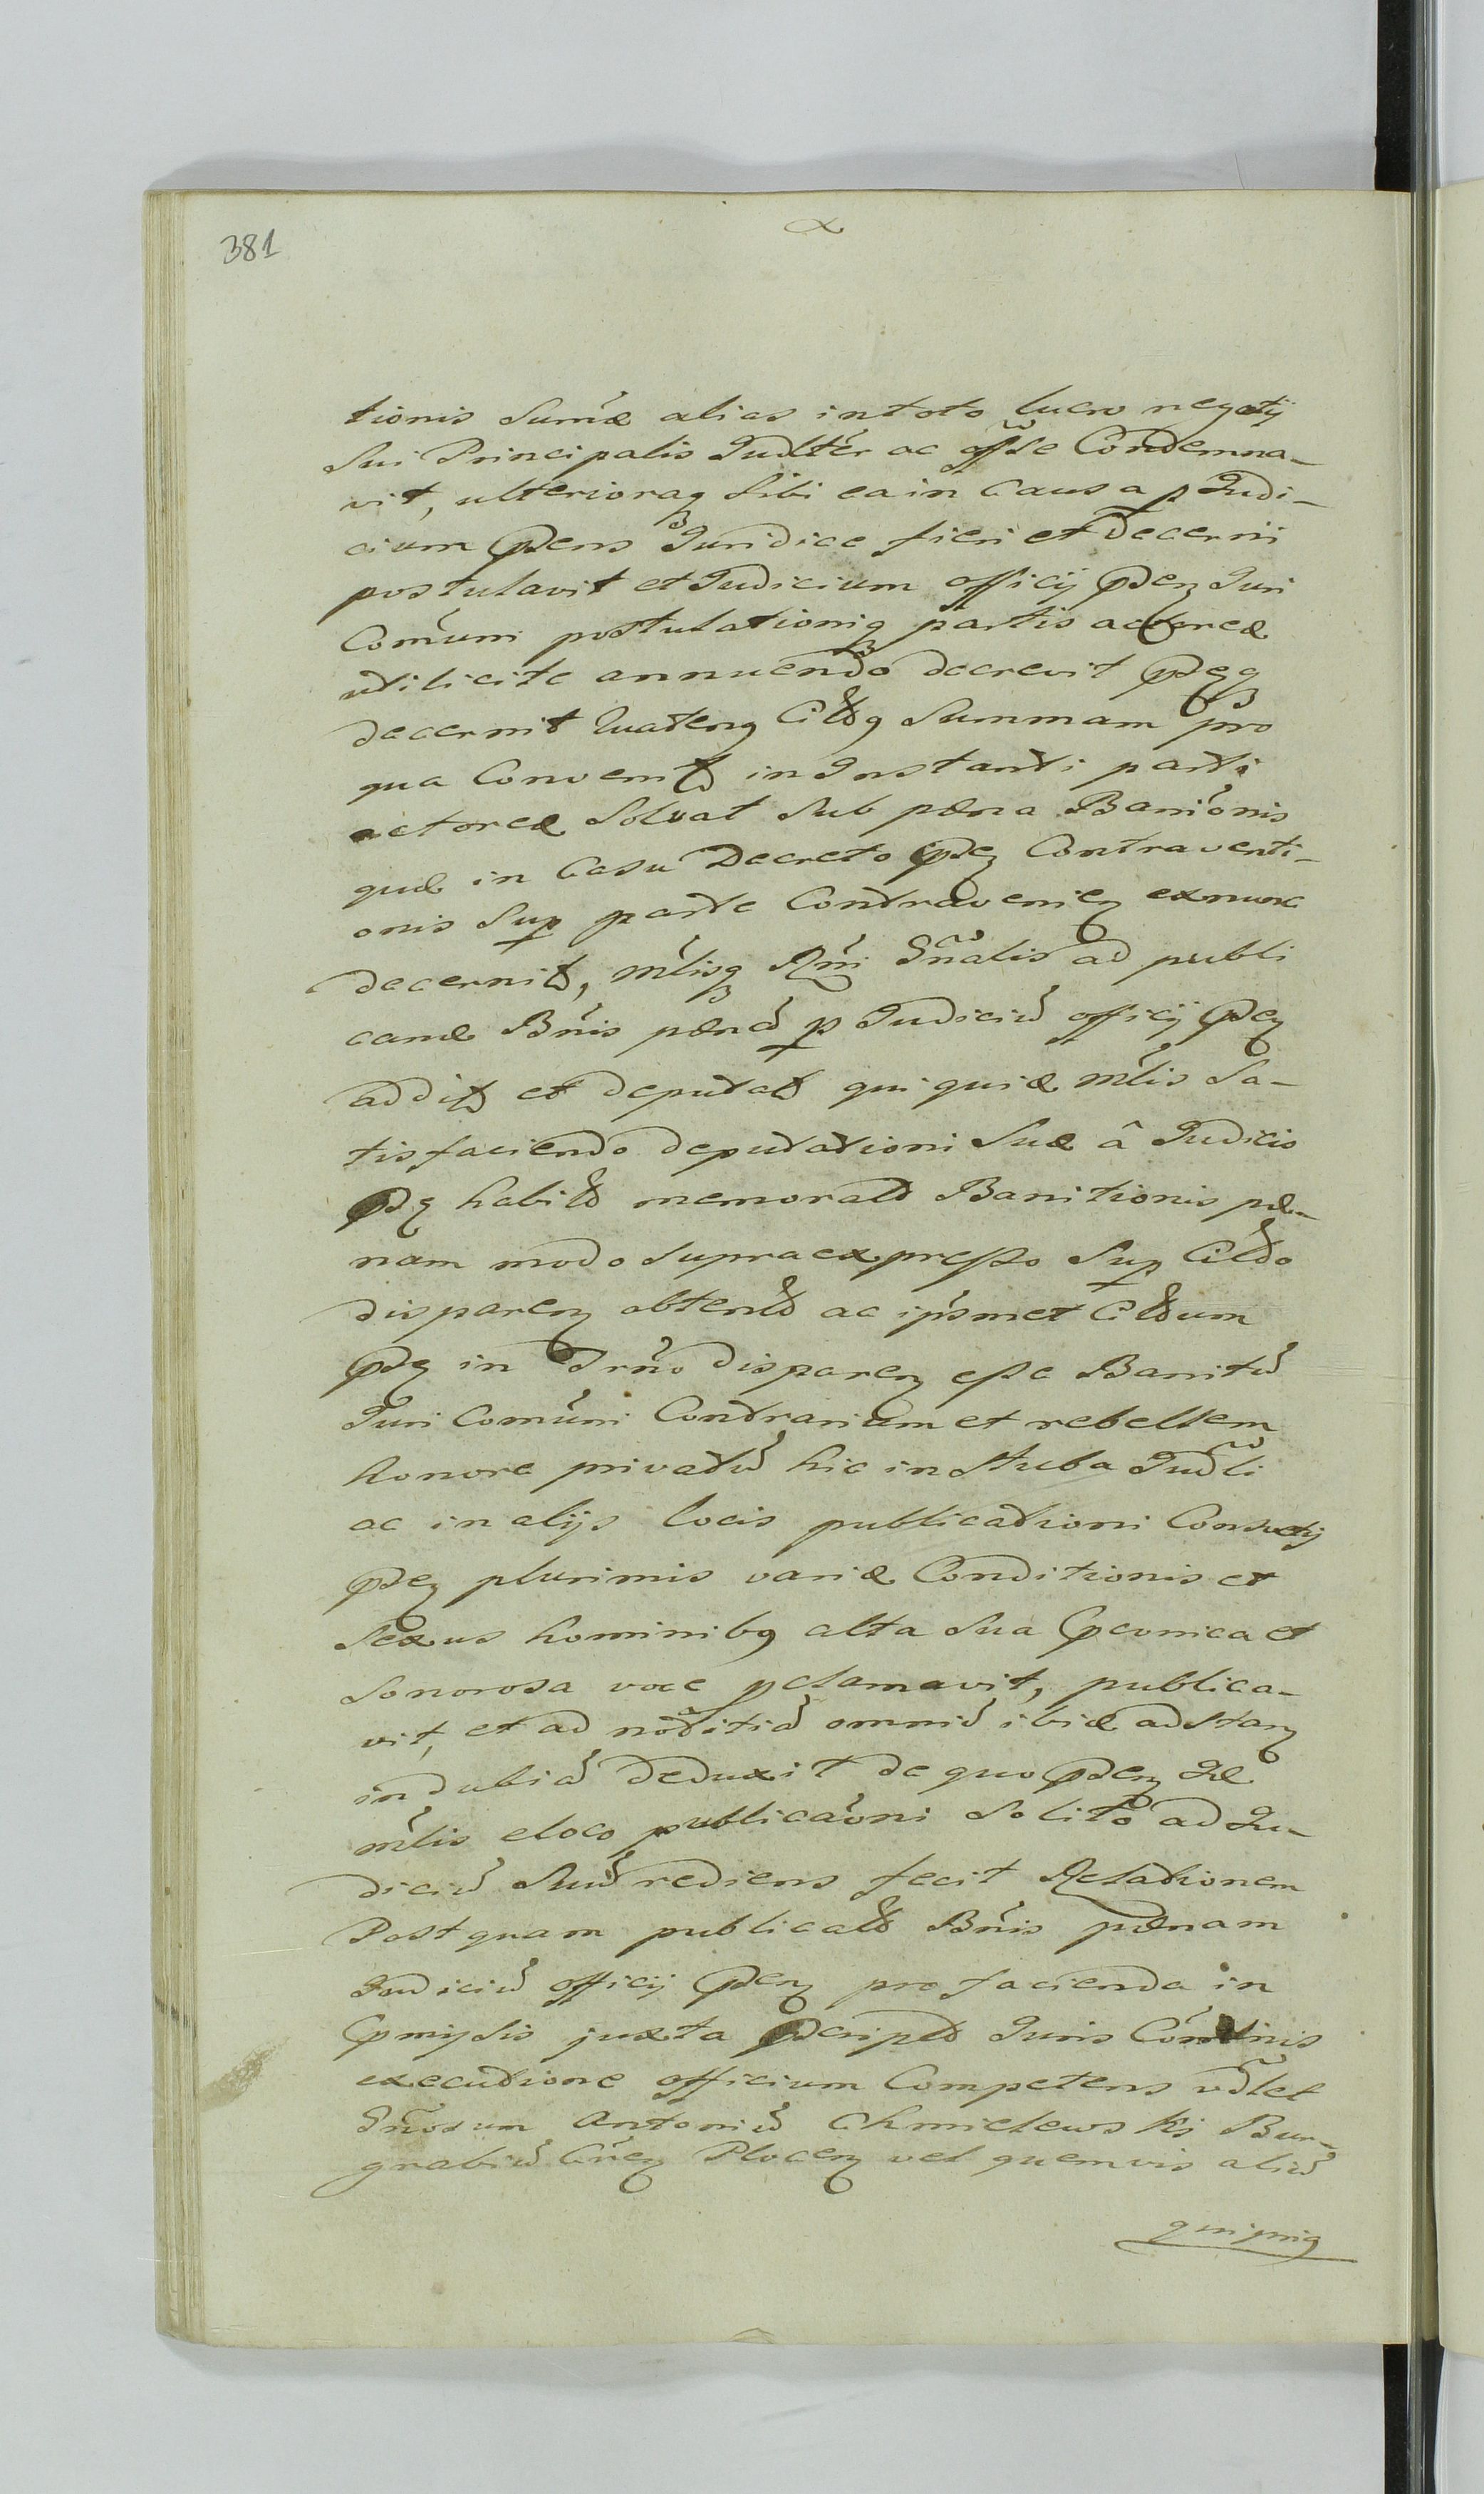 381
tionis Sumæ alias in toto lucro negotij
Sui Principalis Judlter ac offse Condemna-
vit, ulterioraq Sibi ea in Causa p Judi-
cium pdens Juridice fieri et decerni
postulavit et Judicium officij pdenz Juri
Comuni postulationiq partis actoreæ
uti licite annuendo decrevit pdeqz
decernit Quatenq Citdq Summam pro
qua Convenitd in Instanti parti
actoreæ Solvat Sub pæna Banionis
quæ in Casu Decreto pdez Contraventi-
onis Sup parte Contravenienz ex nunc
decernitd, mlisq Rni Gnalis ad publi
canæ Bnis pænã p Judiciũ officij pdez
additd et deputatd qui quiæ mlis Sa-
tisfaciendo deputationi Suæ â Judicio
pdz habitd memoratd Banitionis pæ-
nam modo Supraexpresso Sup Citdo
disparenz obtentd ac ipsmet Citdum
pdz in Trno disparenz esse Banitũ
Juri Comuni Contrarium et rebellem
honore privatũ hic in Stuba Judli
ac in alijs locis publicationi Consvetij
pdez plurimis variæ Conditionis et
Sexus hominibq alta Sua pconica et
Sonorosa voce pclamavit, publica-
vit, et ad notitiã omniũ ibiæ adstanz
indubiã deduxit de quo pdenz Iæ
mlis e loco publicaoni Solito ad Ju-
diciũ Suũ rediens fecit Relationem
Postquam publicatd Bnis pænam
Judiciũ officij pdenz pro facienda in
pmissis juxta pdcriptd Juris Contnis
executione officium Competens vdlet
Gnosum Antoniũ Chmielewski Bur-
grabiũ Crenz Plocenz vel quemvis aliũ
qui priq